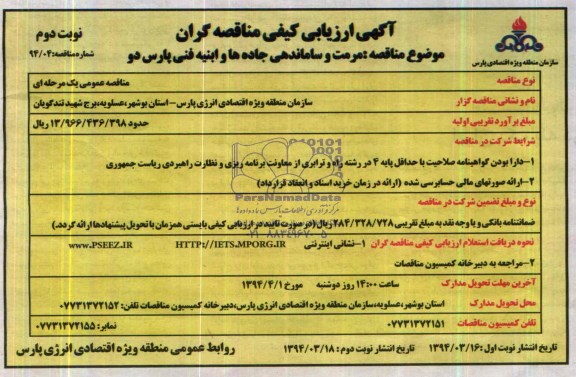 آگهی ارزیابی کیفی مناقصه گران
نوبت دوم
موضوع مناقصه :مرمت و ساماندهی جاده ها و ابنیه فنی پارس دو
شماره مناقصه: ۹۴/۰۴
سازمان منطقه ویژه اقتصادی پارس
نوع مناقصه
مناقصه عمومی یک مرحله ای
نام و نشانی مناقصه گزار
سازمان منطقه ویژه اقتصادی انرژی پارس – استان بوشهر،عسلویه،برج شهید تندگویان
مبلغ برآورد تقریبی اولیه
حدود ۱۳/۹۶۶/۴۳۶/۳۹۸ ریال
شرایط شرکت در مناقصه
۱-دارا بودن گواهینامه صلاحیت با حداقل پایه ۴ در رشته راه و ترابری از معاونت برنامه ریزی و نظارت راهبردی ریاست جمهوری
۲-ارائه صورتهای مالی حسابرسی شده (ارائه در زمان خرید اسناد و انعقاد قرارداد)
نوع و مبلغ تضمین شرکت در مناقصه
ضمانتنامه بانکی و یا وجه نقد به مبلغ تقریبی ۶۸۴/۳۲۸/۷۲۸ ریال (در صورت تایید در ارزیابی کیفی بایستی همزمان با تحویل پیشنهادها ارائه گردد.)
نحوه دریافت استعلام ارزیابی کیفی مناقصه گران
۱-نشانی اینترنتی HTTP://IETS.MPORG.IR www.PSEEZ.IR
۲-مراجعه به دبیرخانه کمیسیون مناقصات
آخرین مهلت تحویل مدارک
ساعت ۱۴:۰۰ روز دوشنبه مورخ ۱۳۹۴/۴/۱
محل تحویل مدارک
استان بوشهر،عسلویه،سازمان منطقه ویژه اقتصادی انرژی پارس،دبیرخانه کمیسیون مناقصات تلفن: ۰۷۷۳۱۳۷۲۱۵۲
تلفن کمیسیون مناقصات
۰۷۷۳۱۳۷۲۱۵۱
نمابر: ۰۷۷۳۱۳۷۲۱۵۵
تاریخ انتشار نوبت اول: ۱۳۹۴/۰۳/۱۶
تاریخ انتشار نوبت دوم: ۱۳۹۴/۰۳/۱۸
روابط عمومی منطقه ویژه اقتصادی انرژی پارس
ParsNamadData